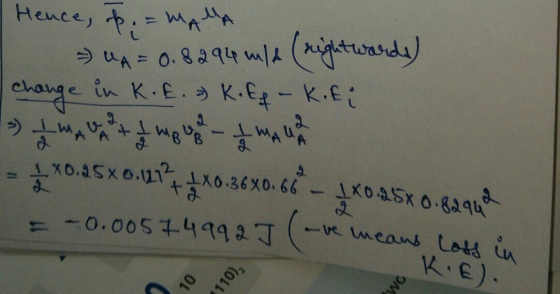 Hence, p̄i = mA uA
⇒ uA = 0.8294 m/s (rightwards)
change in K.E. ⇒ K.Ef - K.Ei
⇒ 1/2 mA vA² + 1/2 mB vB² - 1/2 mA uA²
= 1/2 × 0.25 × 0.121² + 1/2 × 0.36 × 0.66² - 1/2 × 0.25 × 0.8294²
= -0.00574992 J (-ve means loss in
K.E).
10
1110)₂